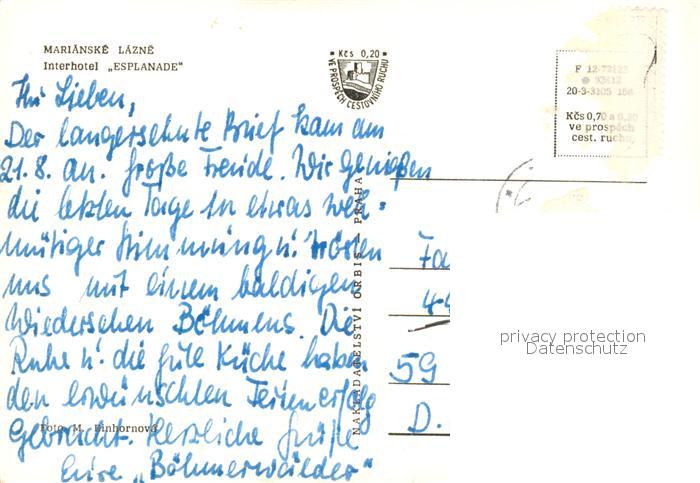 MARIÁNSKÉ LÁZNĚ
Interhotel „ESPLANADE"
Kčs 0,20
VE PROSPĚCH CESTOVNÍHO RUCHU
F 12-72122
20-3-3105 158
Kčs 0,70 a 0,20
ve prospěch
cest. ruchu
Ihr Lieben,
Der langersehnte Brief kam am
21.8. an. Große Freude. Wir genießen
die letzten Tage in etwas weh=
mütiger Stimmung u. trösten
uns mit einem baldigen
Wiedersehen Böhmens. Die
Ruhe u. die gute Küche haben
den erwünschten Ferienerfolg
Gebracht. Herzliche Grüße
Eure „Böhmerwälder"
Foto M. Einhornová
NAKLADATELSTVÍ ORBIS — PRAHA
Fa
44
59
D.
privacy protection
Datenschutz